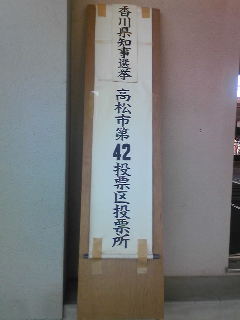 香川県知事選挙
高松市第42投票区投票所